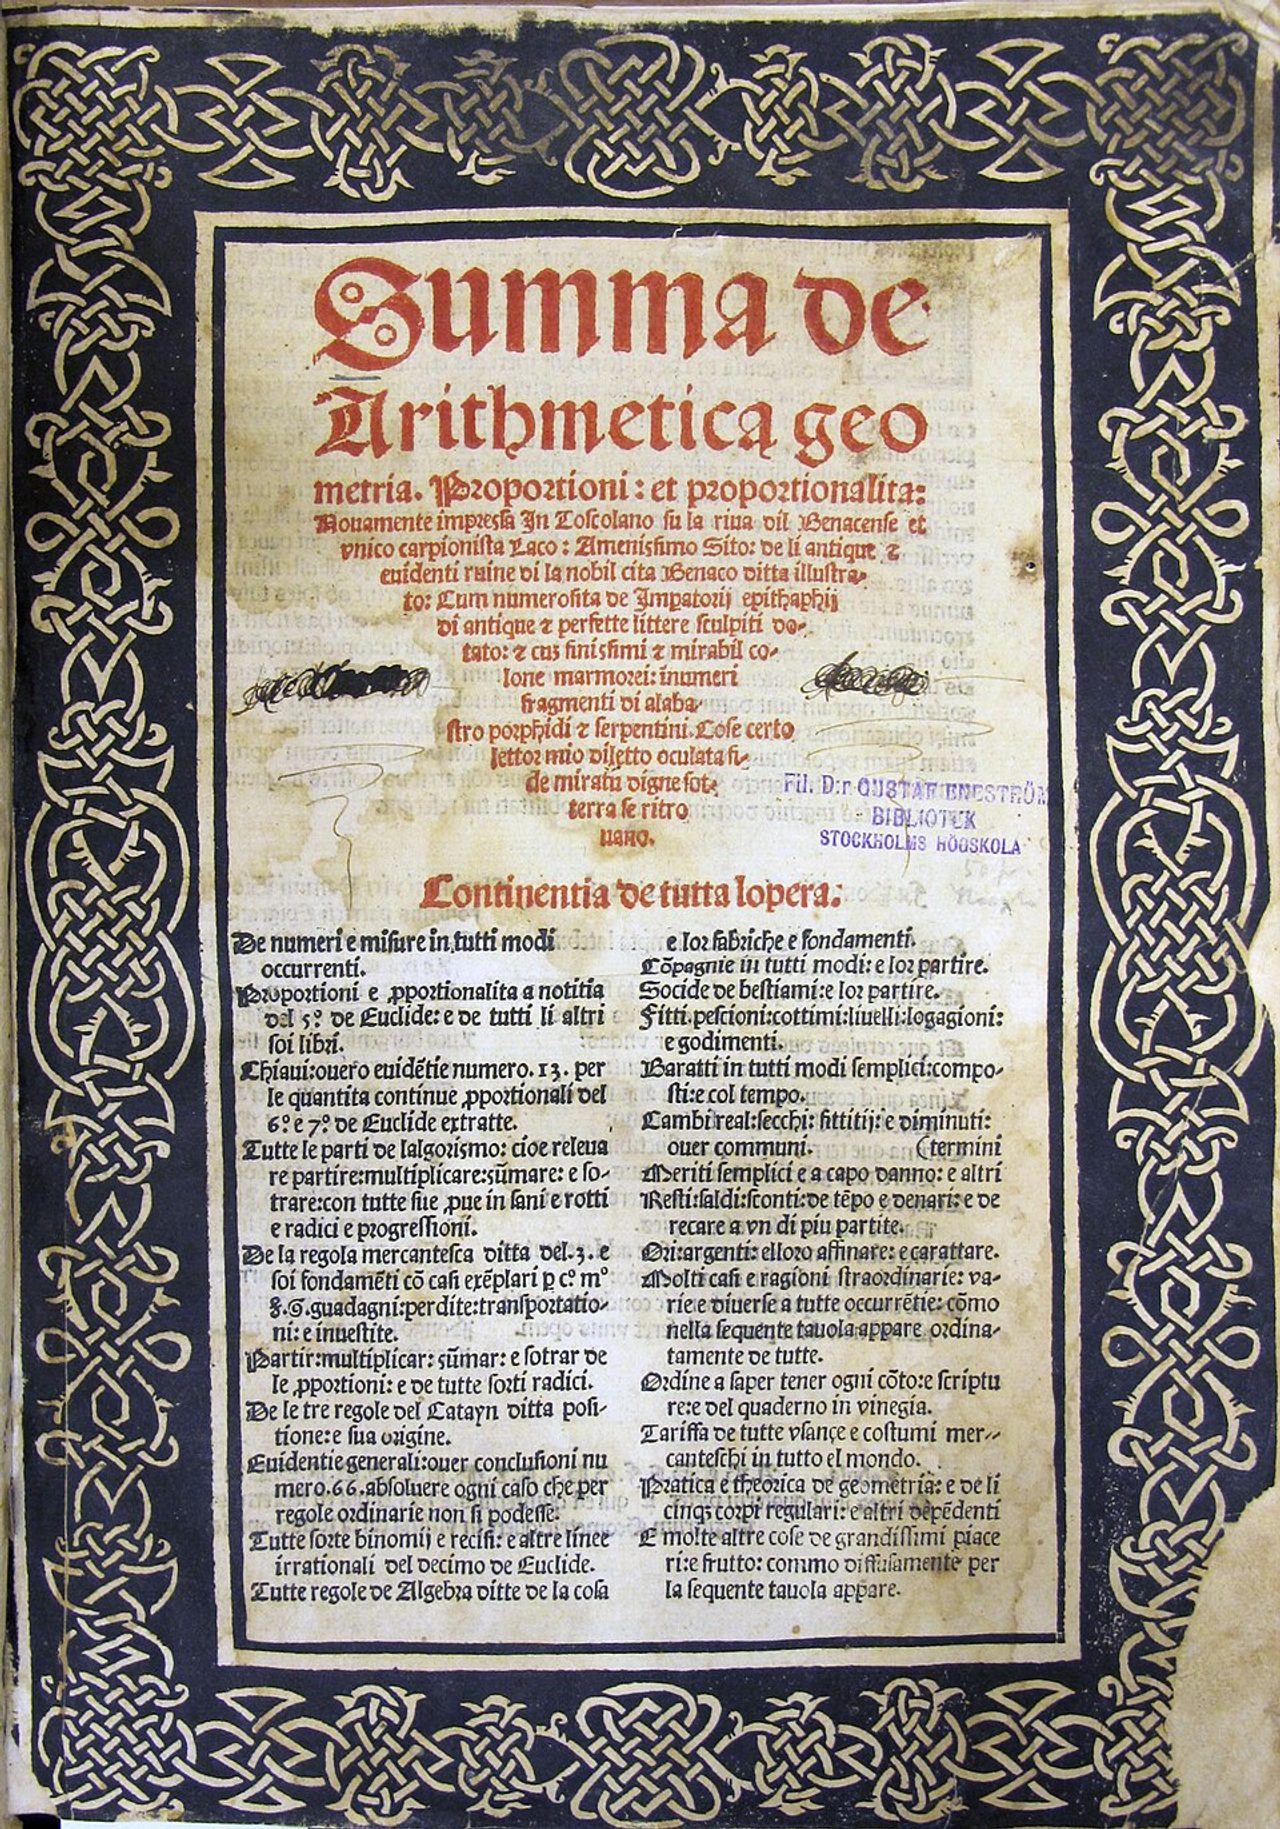 Summa de
Arithmetica geo
metria. Proportioni: et proportionalita:
Nouamente impressa In Toscolano su la riua dil Benacense et
vnico carpionista Laco: Amenissimo Sito: de li antique ⁊
euidenti ruine di la nobil cita Benaco ditta illustra-
to: Cum numerosita de Impatorij epithaphij
di antique ⁊ perfette littere sculpiti do-
tato: ⁊ cũ finissimi ⁊ mirabil co-
lone marmorei: ĩnumeri
fragmenti di alaba-
stro porphidi ⁊ serpentini. Cose certo
lettor mio diletto oculata fi-
de miratu digne sot-
terra se ritro
uano.
Fil. D:r GUSTAF ENESTRÖM
BIBLIOTEK
STOCKHOLMS HÖGSKOLA
Continentia de tutta lopera:
De numeri e misure in tutti modi
occurrenti.
Proportioni e ꝓportionalita a notitia
del 5º de Euclide: e de tutti li altri
soi libri.
Chiaui: ouero euidẽtie numero. 13. per
le quantita continue ꝓportionali del
6º e 7º de Euclide extratte.
Tutte le parti de lalgorismo: cioe releua
re partire: multiplicare: sũmare: e so-
trare: con tutte sue ꝓue in sani e rotti
e radici e progressioni.
De la regola mercantesca ditta del. 3. e
soi fondamẽti cõ casi exẽplari ꝑ cº mº
guadagni: perdite: transportatio-
ni: e inuestite.
Partir: multiplicar: sũmar: e sotrar de
le ꝓportioni: e de tutte sorti radici.
De le tre regole del Catayn ditta posi-
tione: e sua origine.
Euidentie generali: ouer conclusioni nu
mero. 66. absoluere ogni caso che per
regole ordinarie non si podesse.
Tutte sorte binomij e recisi: e altre linee
irrationali del decimo de Euclide.
Tutte regole de Algebra ditte de la cosa
e lor fabriche e fondamenti.
Cõpagnie in tutti modi: e lor partire.
Socide de bestiami: e lor partire.
Fitti: pescioni: cottimi: liuelli: logagioni:
e godimenti.
Baratti in tutti modi semplici: compo-
sti: e col tempo.
Cambi real: secchi: fittitij: e diminuti:
ouer communi. (termini
Meriti semplici e a capo danno: e altri
Resti: saldi: sconti: de tẽpo e denari: e de
recare a vn di piu partite.
Ori: argenti: e lloro affinare: e carattare.
Molti casi e ragioni straordinarie: va-
rie e diuerse a tutte occurrẽtie: cõmo
nella sequente tauola appare ordina-
tamente de tutte.
Ordine a saper tener ogni cõto: e scriptu
re: e del quaderno in vinegia.
Tariffa de tutte vsançe e costumi mer-
canteschi in tutto el mondo.
Pratica e theorica de geometria: e de li
cinqꝫ corpi regulari: e altri dẽpẽdenti
E molte altre cose de grandissimi piace
ri: e frutto: commo diffusamente per
la sequente tauola appare.